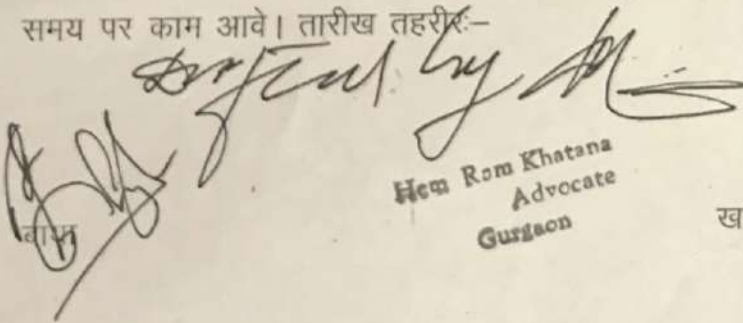 समय पर काम आवे। तारीख तहरीर:–
Drafted by
Hem Ram Khatana
Advocate
Gurgaon
ख